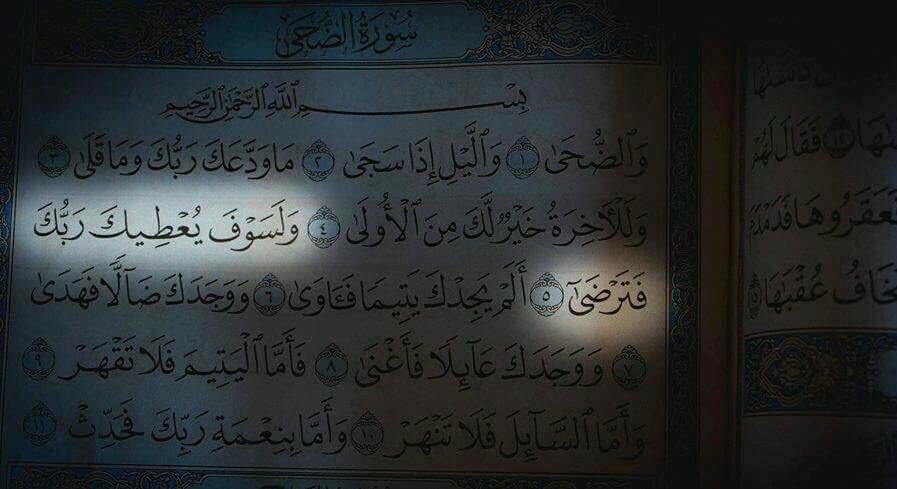 سُورَةُ الضُّحَىٰ
بِسْمِ ٱللَّهِ ٱلرَّحْمَٰنِ ٱلرَّحِيمِ
وَٱلضُّحَىٰ ١ وَٱلَّيْلِ إِذَا سَجَىٰ ٢ مَا وَدَّعَكَ رَبُّكَ وَمَا قَلَىٰ ٣
وَلَلْأَخِرَةُ خَيْرٌ لَّكَ مِنَ ٱلْأُولَىٰ ٤ وَلَسَوْفَ يُعْطِيكَ رَبُّكَ
فَتَرْضَىٰٓ ٥ أَلَمْ يَجِدْكَ يَتِيمًا فَـَٔاوَىٰ ٦ وَوَجَدَكَ ضَآلًّا فَهَدَىٰ
٧ وَوَجَدَكَ عَآئِلًا فَأَغْنَىٰ ٨ فَأَمَّا ٱلْيَتِيمَ فَلَا تَقْهَرْ ٩
وَأَمَّا ٱلسَّآئِلَ فَلَا تَنْهَرْ ١٠ وَأَمَّا بِنِعْمَةِ رَبِّكَ فَحَدِّثْ ١١
فَقَالَ لَهُمْ
فَعَقَرُوهَا فَدَمْدَمَ
يَخَافُ عُقْبَٰهَا ١٥